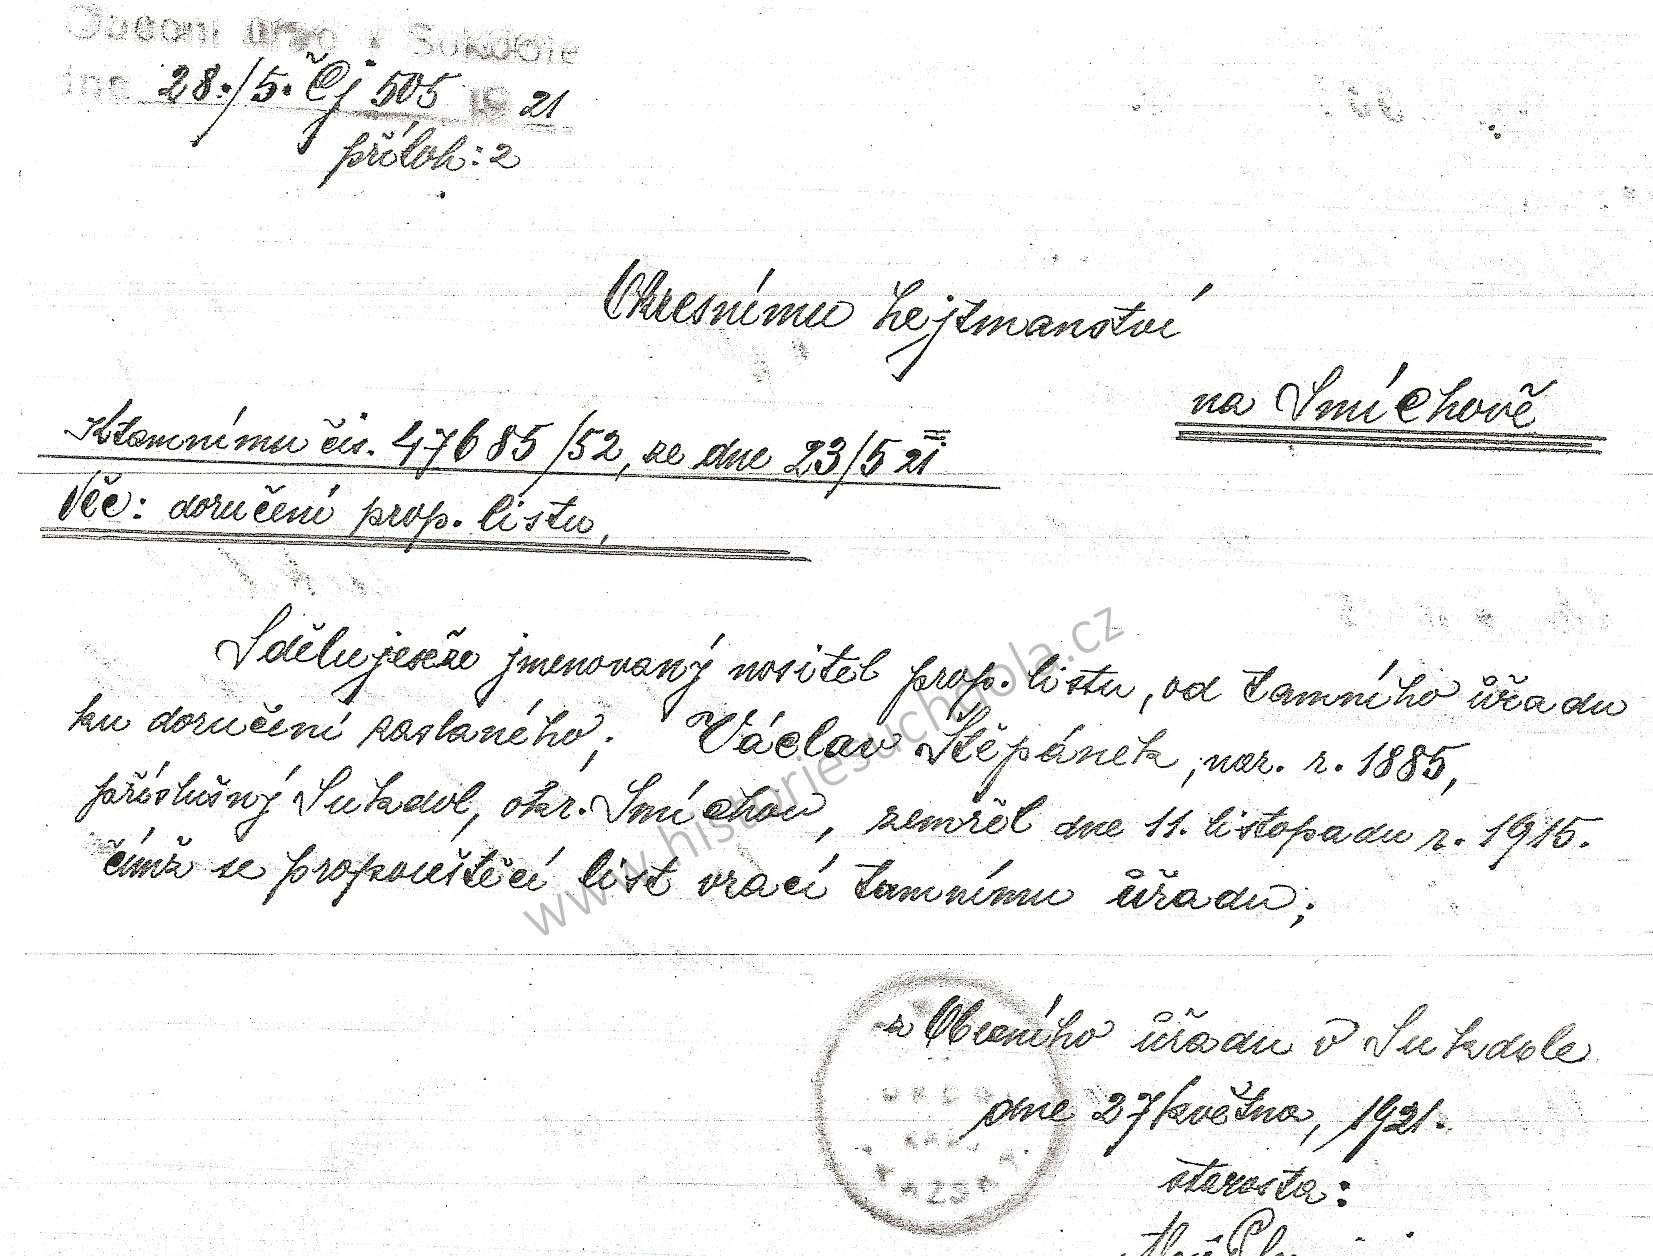 Obecní úřad v Sukdole
dne 28./5. Čj 505 19 21
příloh: 2
Okresnímu hejtmanství
na Smíchově
K tamnímu čís. 47685/52, ze dne 23/5 21
Věc: doručení prop. listu,
Sděluje se že jmenovaný nositel prop. listu, od tamního úřadu
ku doručení zaslaného; Václav Štěpánek, nar. r. 1885,
příslušný Sukdol, okr. Smíchov, zemřel dne 11. listopadu r. 1915.
čímž se propouštěcí list vrací tamnímu úřadu;
z Obecního úřadu v Sukdole
dne 27 května, 1921.
starosta:
www.historiesuchdola.cz